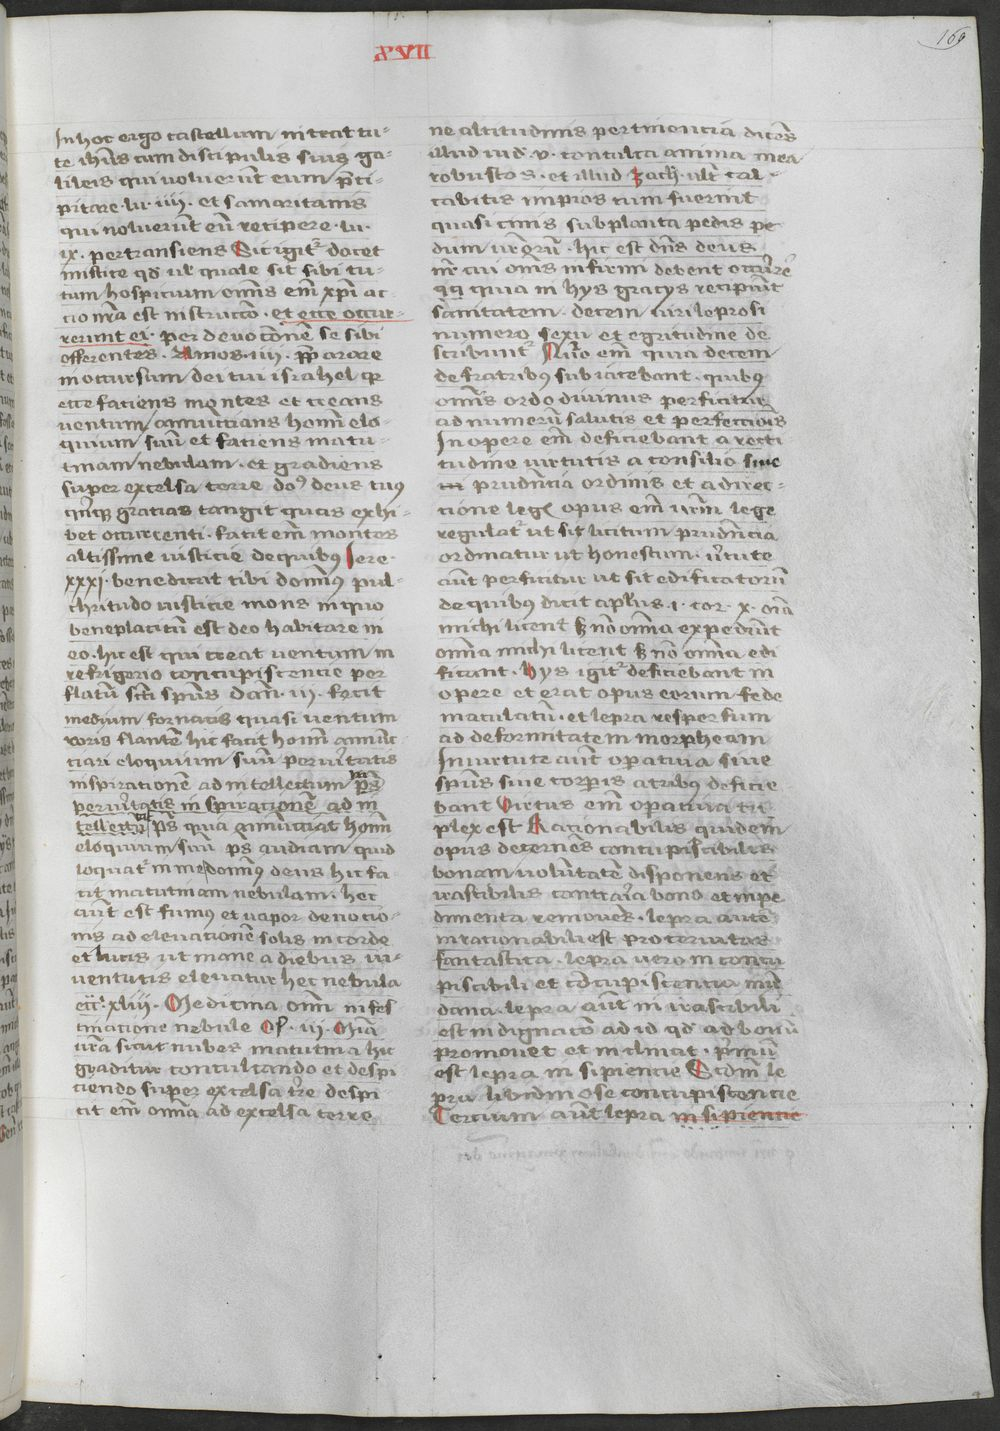 169
XVII
In hoc ergo castellum intrat tu-
te ihūs cum discipulis suis ga-
lileis qui voluerūt eum p̄ci-
pitare lu. iiii. et samaritanis
qui noluerūt eū recipere lu.
ix. pertransiens Sic igit᷑ docet
mistice qd ul' quale sit sibi tu-
tum hospicium omīs em̄ xp̄i ac-
tio nr̄a est instructō. et ecce occur-
rerunt ei. per devocōnē se sibi
offerentes. Amos. iiii. p̄parare
in occursum dei tui israhel qr
ecce faciens montes et creans
ventum annuncians homī elo-
quium suū et faciens matu-
tinam nebulam. et gradiens
super excelsa terre dō' deus tuus
gratias tangit exhi-
bet occurrenti. facit em̄ montes
altissime iusticie de quibus Jere.
xxxi. benedicat tibi domīus pul-
chritudo iusticie mons in quo
beneplacitū est deo habitare in
eo. hic est qui creat ventum in
refrigerio concupiscencie per
flatū scti spūs Dan. iii. fecit
medium fornacis quasi ventum
roris flantē hic facit homī annūc
ciari eloquium suū per vītatis
inspirationē ad intellectum p̄s
per vītatis inspirationē ad in
tellectū p̄s quia annūciat homī
eloquium suū p̄s Audiam quid
loquat᷑ in me domīus deus hic fa
cit matutinam nebulam. hec
aūt est fumus et vapor devocio-
nis ad elevationē solis in corde
et lucis ut mane a diebus iu-
ventutis elevatur hec nebula
ecci. xliii. Medicina oīm in fes
tinacione nebule Os. iii. Mīa
vr̄a sicut nubes matutina hic
graditur conculcando et despi
ciendo super excelsa t're despi
cit em̄ omīa ad excelsa terre
ne altitudinis pertinencia dicēs
illud iud. v. conculca anima mea
robustos. et illud Zach. ult cal-
cabitis impios cum fuerint
quasi cinis sub planta pedis pe
dum vr̄orū. hic est dn̄s deus
nr̄ cui omīs infirmi debent occu'rē
qq quia in hys gracys recipiūt
sanitatem. decem viri leprosi
numero sexu et egritudine de
scribunt᷑ Nūo em̄ quia decem
de fratribus subiacebant. quibus
omīs ordo divinus perficitur
ad numerū salutis et perfectiōis
In opere em̄ deficiebant a recti-
tudine virtutis a consilio sive
prudēncia ordinis et a direc-
cione legē opus em̄ nrm̄ lege
regulat᷑ ut sit licitum prudēncia
ordinatur ut honestum. v'tute
aūt perficitur ut sit edificatoriū
de quibus dicit aplus. 1. cor. x. oīa
michi licent sz nō omīa expediūt
omīa michi licent sz nō omīa edi
ficant. Hys igit᷑ deficiebant in
opere et erat opus eorum fede
maculatū. et lepra respersum
ad deformitatem morpheam
In virtute aūt operativa sive
spūs sive corpis a tribus deficie
bant Virtus em̄ operativa tri
plex est Racionabilis quidem
opus decernēs concupiscibilis
bonam voluntatem disponens et
irascibilis contraria bono et inpe
dimenta removēs. lepra autē
in racionabili est protervitas
fantastica. lepra vero in concu
piscibili et cōcupiscencia mū
dana. lepra aūt in irascibili
est indignacō ad id qd ad bonū
promovet et inclinat. primū
est lepra insipiencie Scdm̄ le
pra libidinose concupiscencie
Tercium aūt lepra insipiencie